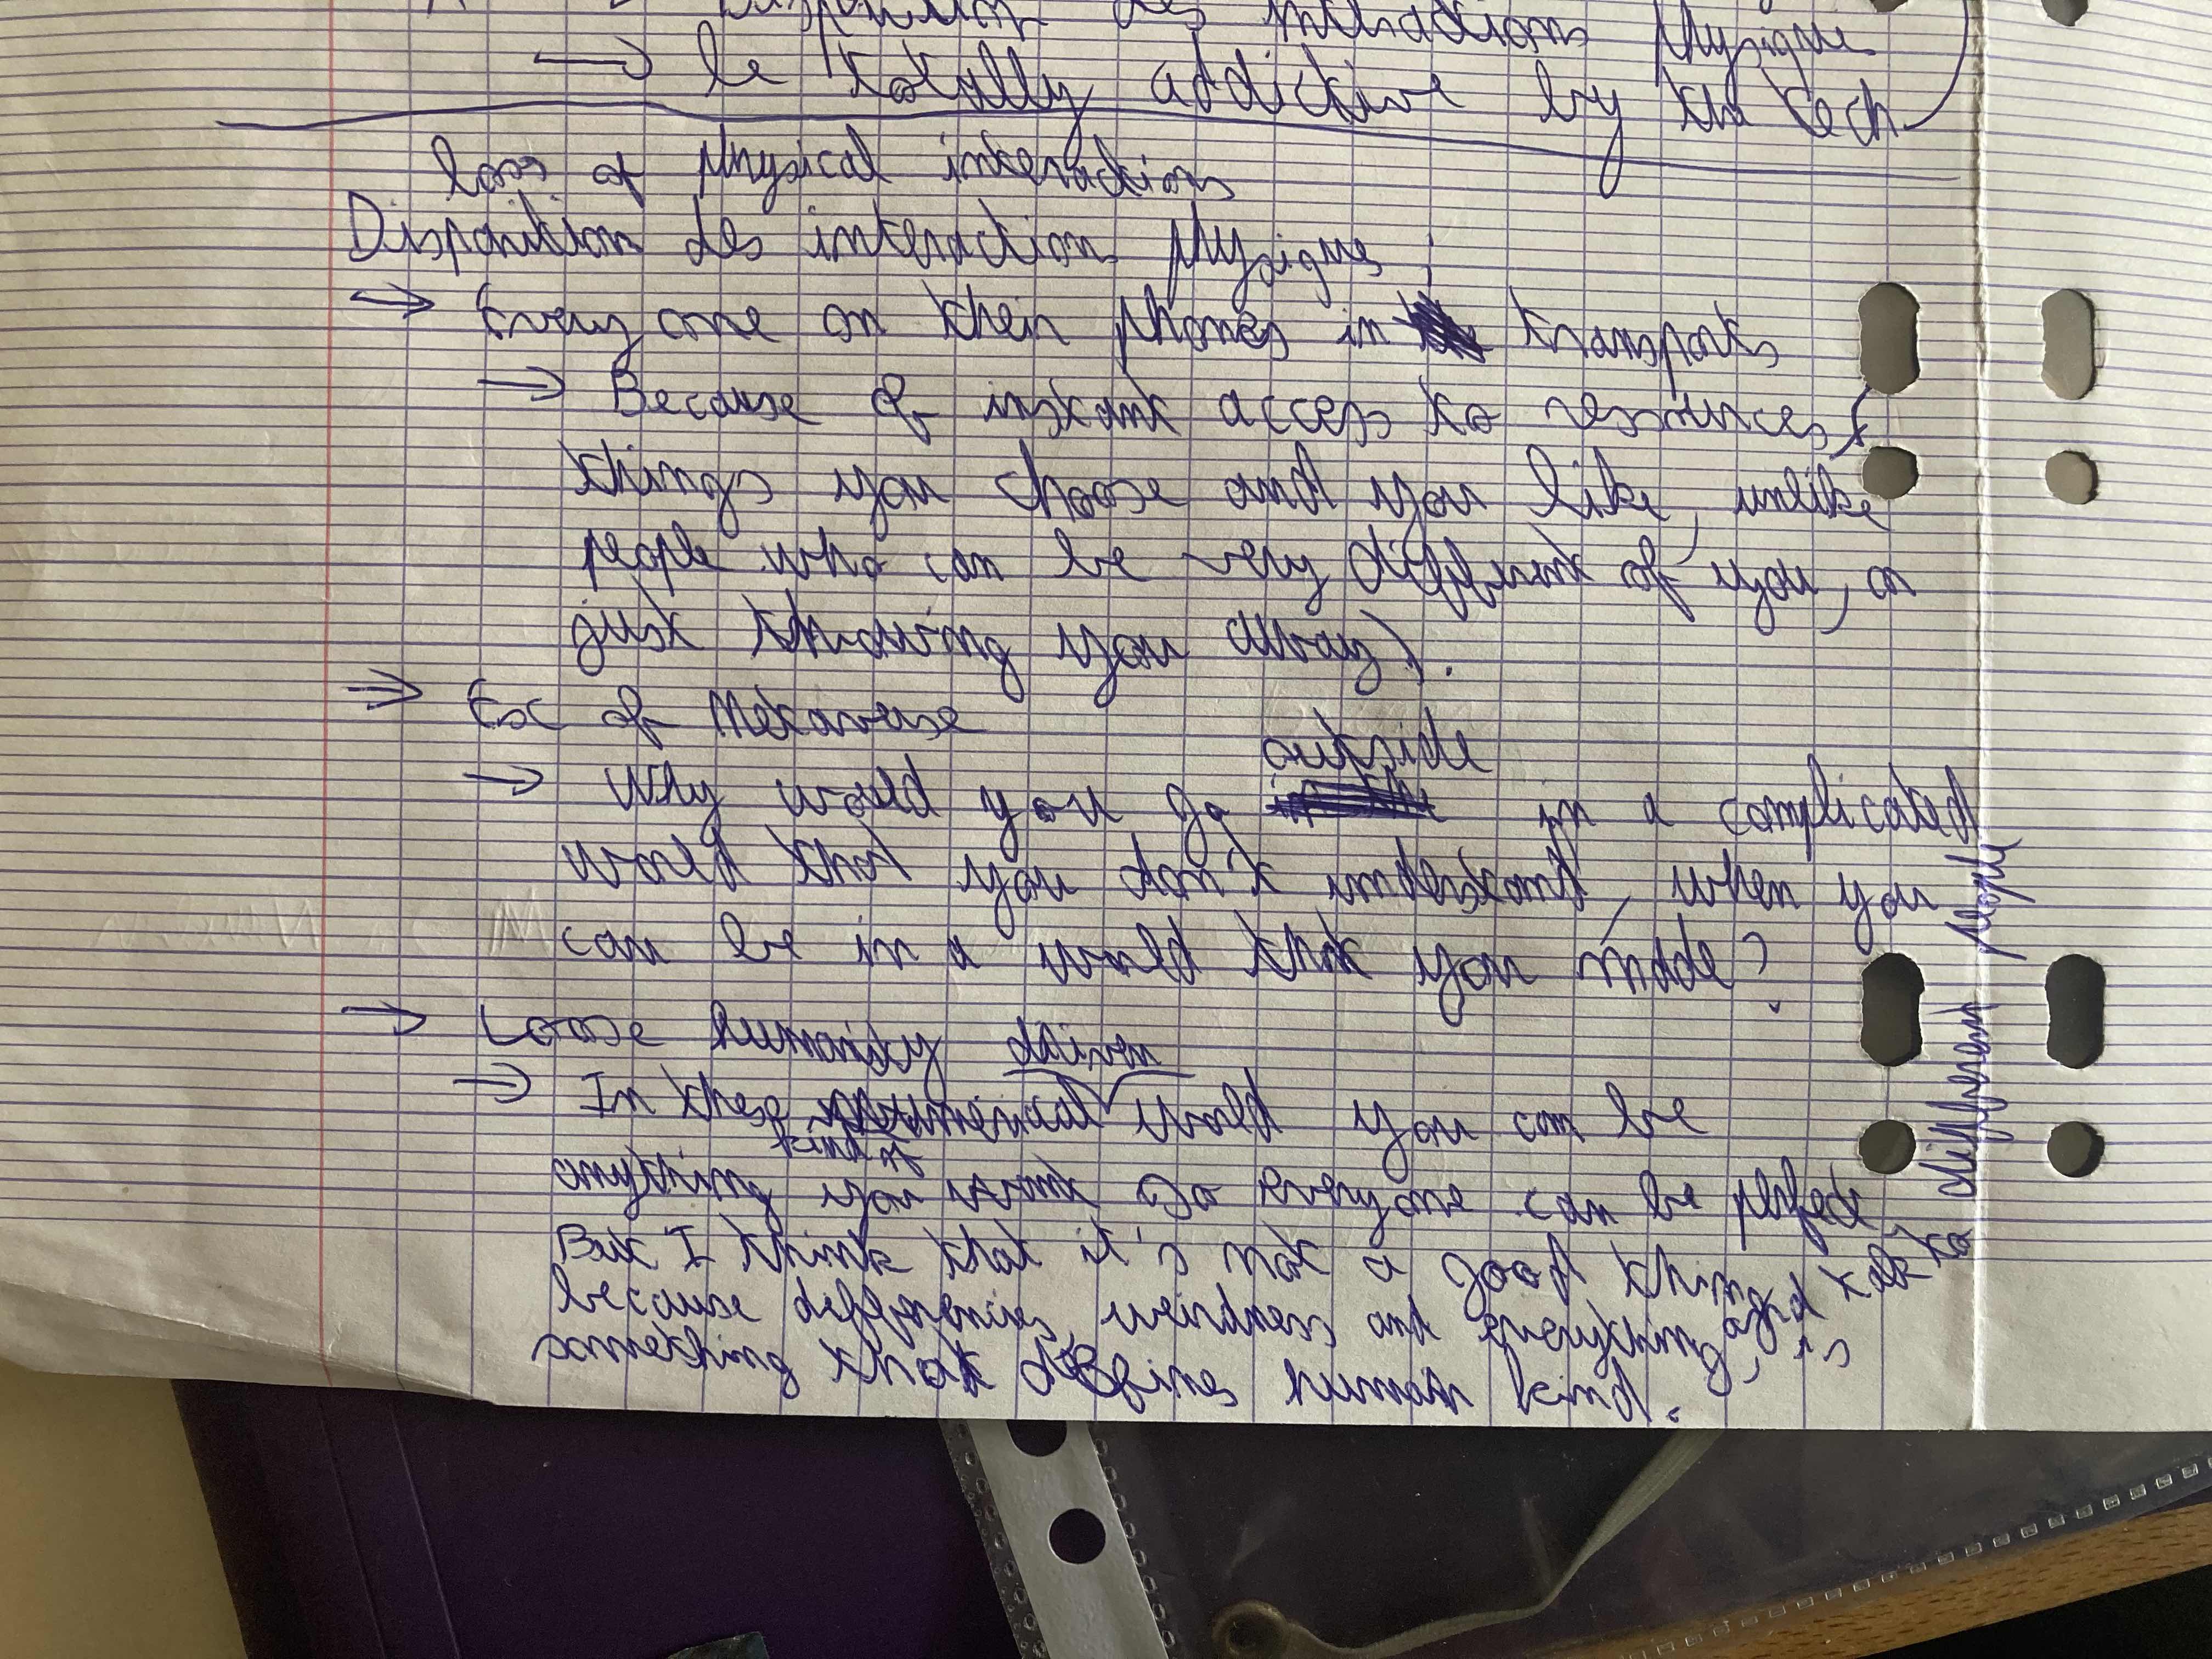 Disparition des interactions physique
→ be totally addictive by the tech
loss of physical interactions
Disparition des interactions physiques :
⇒ Every one on their phones in transports
→ Because of instant access to ressources (
things you choose and you like, unlike
people who can be very different of you, or
just throwing you away).
⇒ Ex of Metaverse
outside
→ Why would you go in a complicated
world that you don't understand, when you
can be in a world that you made?
→ Loose humanity
driven
→ In these kind of world you can be
anything you want so everyone can be perfect
But I think that it's not a good thing
because differencies, weirdness and everything, is
and talk to different people
something that defines human kind.